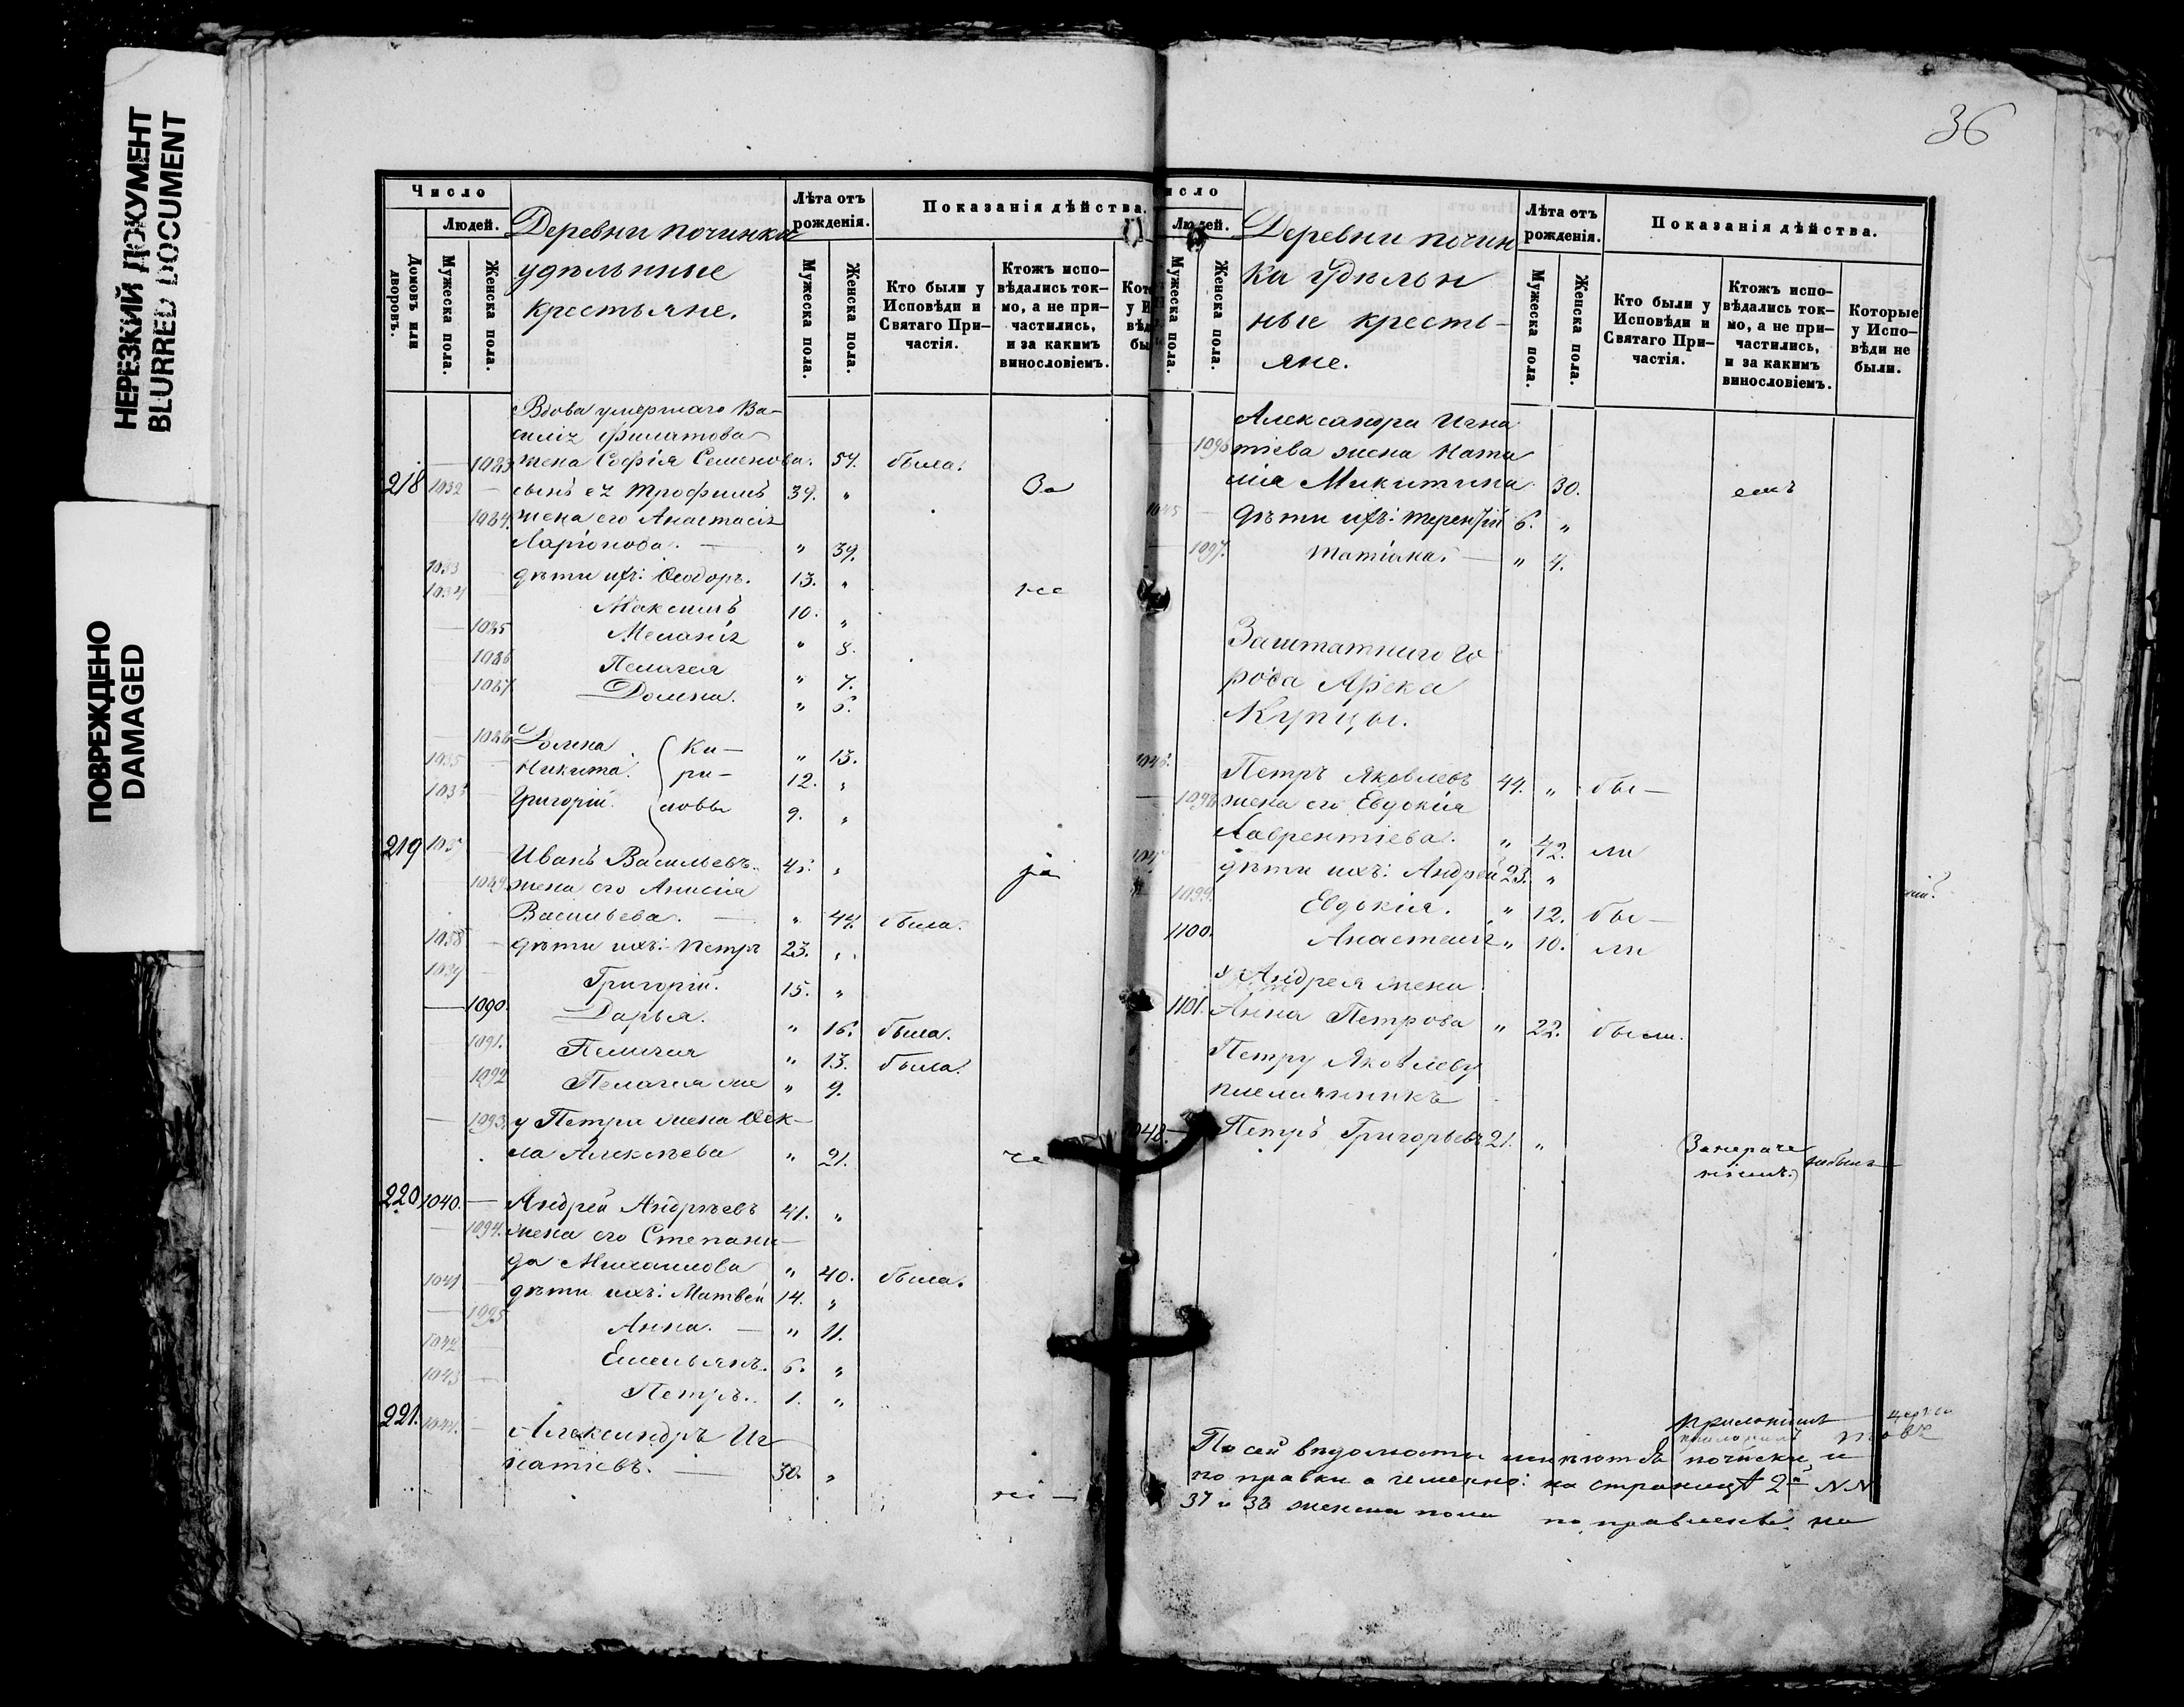 НЕРЕЗКИЙ ДОКУМЕНТ
BLURRED DOCUMENT
ПОВРЕЖДЕНО
DAMAGED
Число
Людей.
Домовъ или дворовъ.
Мужеска пола.
Женска пола.
Деревни починка
удѣльные
крестьяне.
Лѣта отъ рожденія.
Мужеска пола.
Женска пола.
Показанія дѣйства.
Кто были у Исповѣди и Святаго При-частія.
Ктожъ испо-вѣдались ток-мо, а не при-частились, и за какимъ винословіемъ.
Вдова умершаго Ва-
силія Филатова
1083 жена Софія Семенова. 54. была.
218 1032 — сынъ ея Трофимъ 39. " За
— 1084. жена его Анастасія
Ларіонова. — " 39.
1033 дѣти ихъ: Ѳеодоръ. 13. "
1034 Максимъ 10. "
— 1085 Меланія " 8.
— 1086 Пелагея " 7.
— 1087 Домна. " 5.
— 1088 Домна " 13.
1035 Никита. 12. "
Григорій. 9. "
Ки-
ри-
ловы
219 Иванъ Васильевъ. 45. "
1089 жена его Анисія
Васильева. — " 44. была.
1038 — дѣти ихъ: Петръ 23. "
1039 — Григорій. 15. "
— 1090. Дарья. " 16. была.
1091. Пелагея " 13. была.
1092 Пелагея " 9.
— 1093. у Петра жена Ѳек-
ла Алексѣева " 21.
220 1040. — Андрей Андрѣевъ 41. "
— 1094. жена его Степани-
да Михаилова " 40. была.
1041 — дѣти ихъ: Матвѣй 14. "
— 1095 Анна. — " 11.
1042 — Емельянъ. 6. "
1043 — Петръ. 1. "
221. 1044. — Александръ Иг-
натіевъ. — 30. "
36
Людей.
Мужеска пола.
Женска пола.
Деревни почин
ка Удѣльн
ные кресть-
яне.
Лѣта отъ рожденія.
Мужеска пола.
Женска пола.
Показанія дѣйства.
Кто были у Исповѣди и Святаго При-частія.
Ктожъ испо-вѣдались ток-мо, а не при-частились, и за какимъ винословіемъ.
Которые у Испо-вѣди не были.
Александра Игна
1096 тіева жена Ната
лія Никитина 30.
1045 — дѣти ихъ: Терентій 6. "
— 1097. Татіана. — " 4.
Заштатнаго го
рода Арска
Купцы.
1046. Петръ Яковлевъ 44. " бы-
— 1098 жена его Евдокія
Лаврентіева. " 42. ли
дѣти ихъ: Андрей 23. "
1099. Евдокія. " 12. бы-
1100. Анастасія " 10. ли
у Андрея жена
1101. Анна Петрова " 22. были.
Петру Яковлеву
племянникъ
1048. — Петръ Григорьевъ 21. " небылъ
По сей вѣдомости имѣются почистки и
поправки а именно: на страницѣ 2й NN
37 и 38 женска пола поправлены на